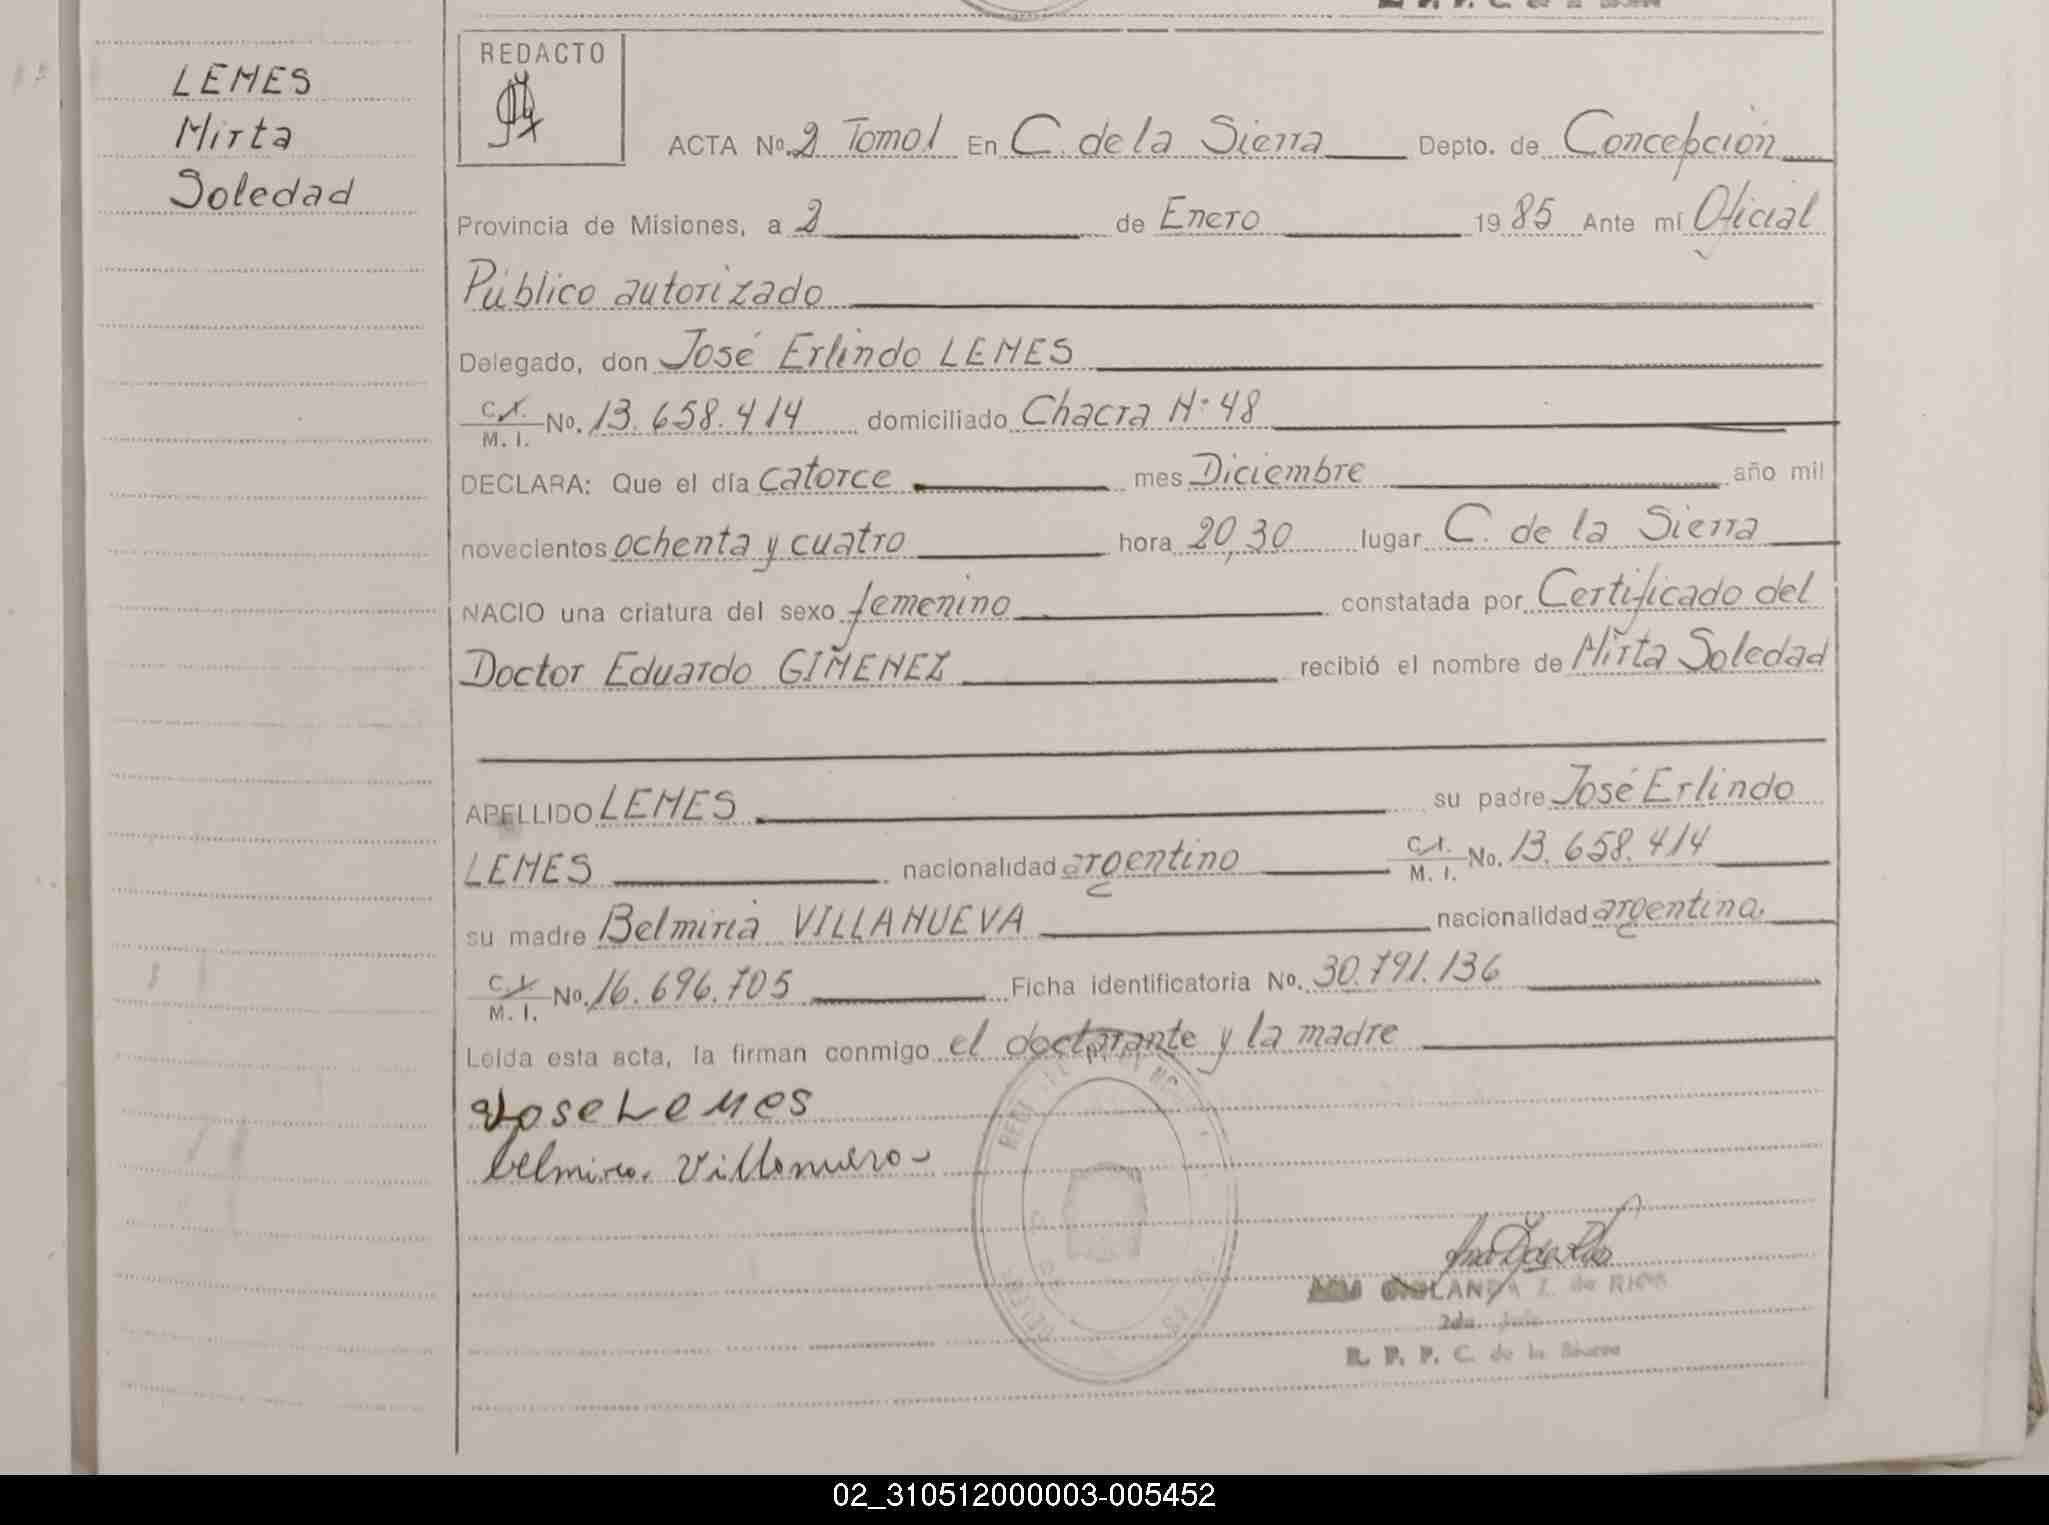 LEMES
Mirta
Soledad
REDACTO
ACTA No. 2 Tomo I En C. de la Sierra Depto. de Concepción
Provincia de Misiones, a 2 de Enero 1985 Ante mí Oficial
Público autorizado
Delegado, don José Erlindo LEMES
C.I. M. I. No. 13.658.414 domiciliado Chacra N° 48
DECLARA: Que el día catorce mes Diciembre año mil
novecientos ochenta y cuatro hora 20,30 lugar C. de la Sierra
NACIO una criatura del sexo femenino constatada por Certificado del
Doctor Eduardo GIMENEZ recibió el nombre de Mirta Soledad
APELLIDO LEMES su padre José Erlindo
LEMES nacionalidad argentino C.I. M. I. No. 13.658.414
su madre Belmiria VILLANUEVA nacionalidad argentina.
C.I. M. I. No. 16.696.705 Ficha identificatoria No. 30.791.136
Leída esta acta, la firman conmigo el declarante y la madre
Jose Lemes
belmira. Villanueva
LANDA Z. de RIOS
2da. Jefe
R. P. P. C. de la Sierra
02_310512000003-005452